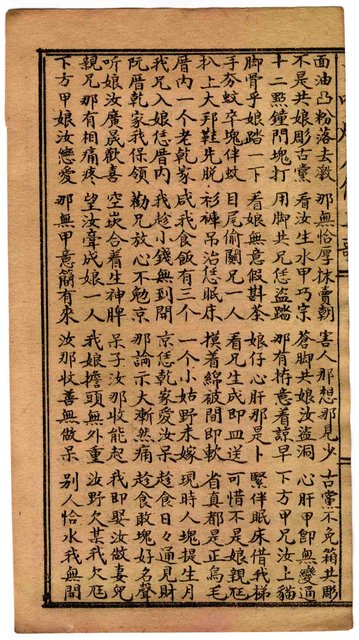 面油凸粉落去激　那無恰厚抹賣朝　害人那想那見少　古黨不免箱共彫
不是共娘彫古黨　看汝生水甲巧宗　蒼脚共娘汝盜洞　心肝甲即無變通
十二點鐘門塊打　用脚共兄恁盜踏　那有拵意看諒早　下方甲兄汝上貓
脚骨乎娘踏一下　看娘無意假斟茶　娘仔心肝那是卜　緊伴眠床借我梯
手夯蚊卒塊伴蚊　目尾偷關兄一人　看兄生成即皿送　可惜不是娘親尪
扒上大邱鞋先脫　衫褲吊治恁眠床　摸着綿被間即軟　省真都是正烏毛
厝內一个老乾家　咸我食飯有三个　一个小姑野未嫁　現時人塊提生月
我兄入娘恁厝內　我趁小錢無到開　京恁乾家愛汝呆　趁食日々通見財
阮厝乾家我保領　勸兄放心不勉京　那論示大漸然痛　趁食敢塊好名聲
听娘汝廣民歡喜　空嵌合着生神脾　呆子汝那收能起　我即娶汝做妻兒
親兄那有相痛疼　望汝聳成娘一人　我娘擔頭無外重　汝野欠某我欠尪
下方甲娘汝戀愛　那無甲意簡有來　汝那收善無做呆　別人恰水我無開